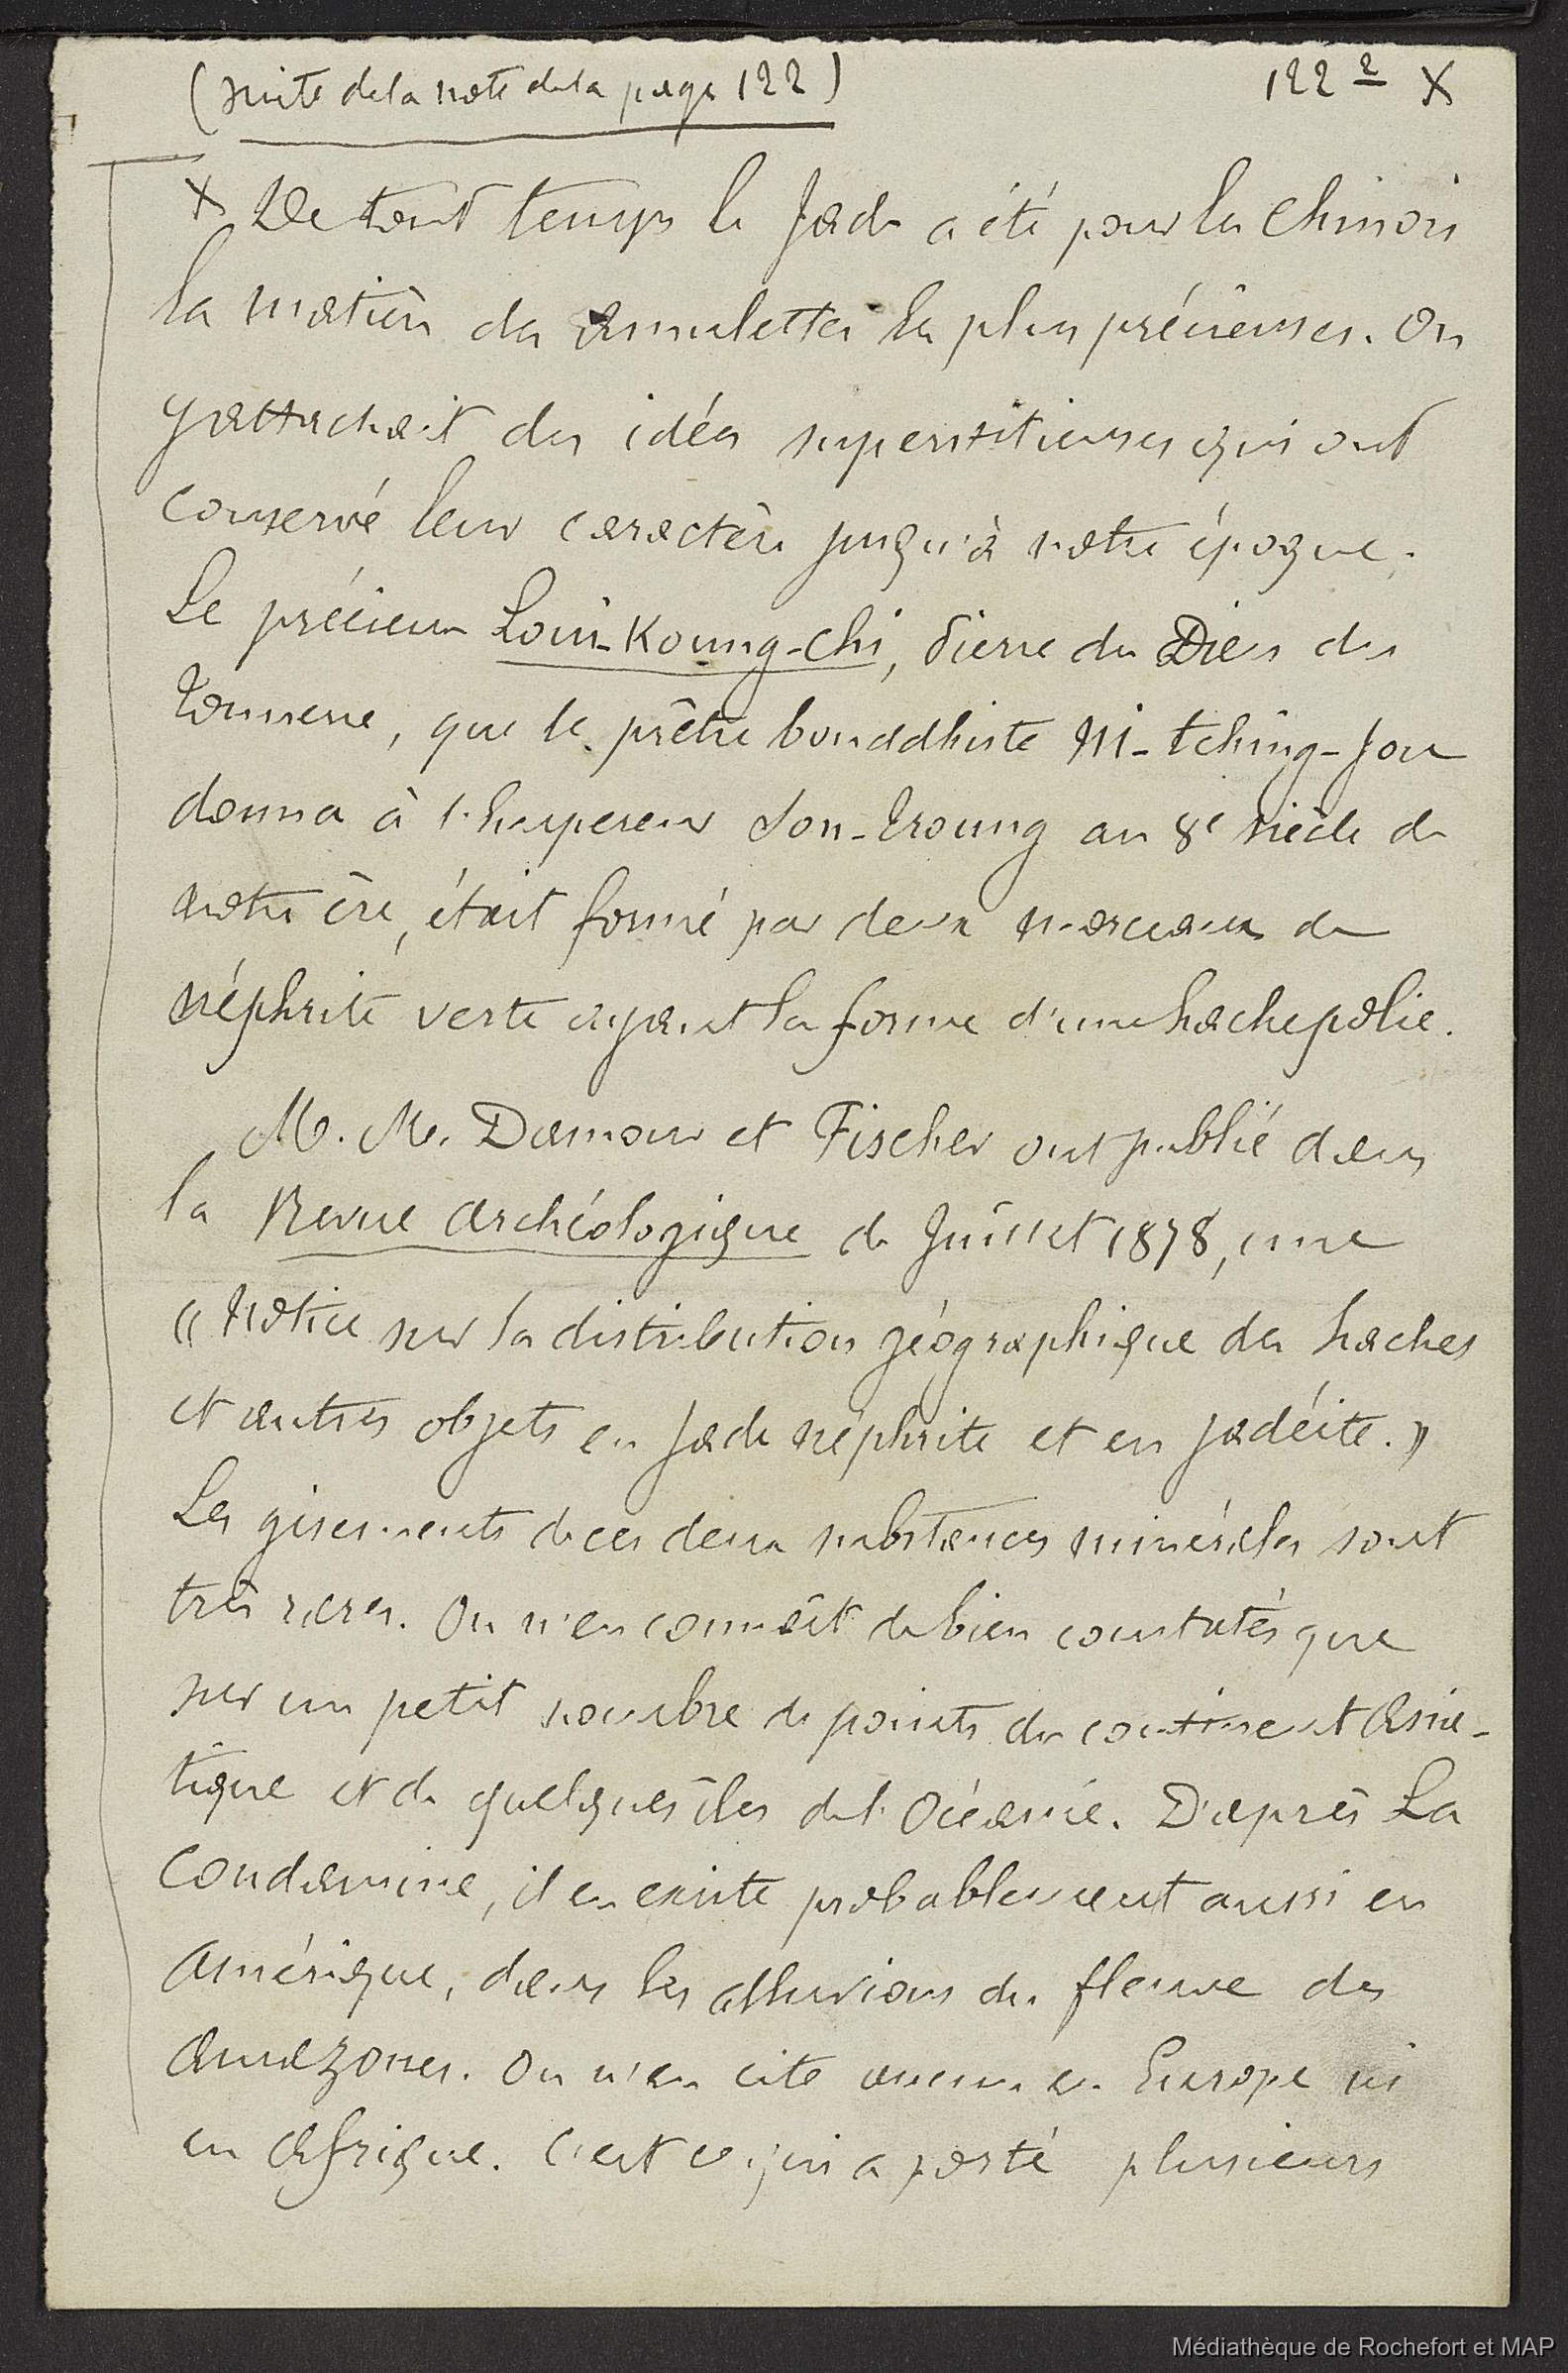 (suite de la note de la page 122) 122 2 X
X De tout temps le Jade a été pour les Chinois
la matière des amulettes les plus précieuses. On
y attachait des idées superstitieuses qui ont
conservé leur caractère jusqu'à notre époque.
Le précieux Loui-Koung-Chi, Pierre du Dieu du
Tonnerre, que le prêtre bouddhiste Ni-tching-Jou
donna à l'Empereur Sou-Tsoung au 8e siècle de
notre ère, était formé par deux morceaux de
néphrite verte ayant la forme d'une hache polie.
M. M. Damour et Fischer ont publié dans
la Revue archéologique de Juillet 1878, une
« Notice sur la distribution géographique des haches
et autres objets en Jade néphrite et en jadéite. »
Les gisements de ces deux substances minérales sont
très rares. On n'en connaît de bien constatés que
sur un petit nombre de points du continent Asia-
tique et de quelques îles de l'Océanie. D'après La
Condamine, il en existe probablement aussi en
Amérique, dans les alluvions du fleuve des
Amazones. On n'en cite aucun en Europe ni
en Afrique. C'est ce qui a porté plusieurs
Médiathèque de Rochefort et MAP